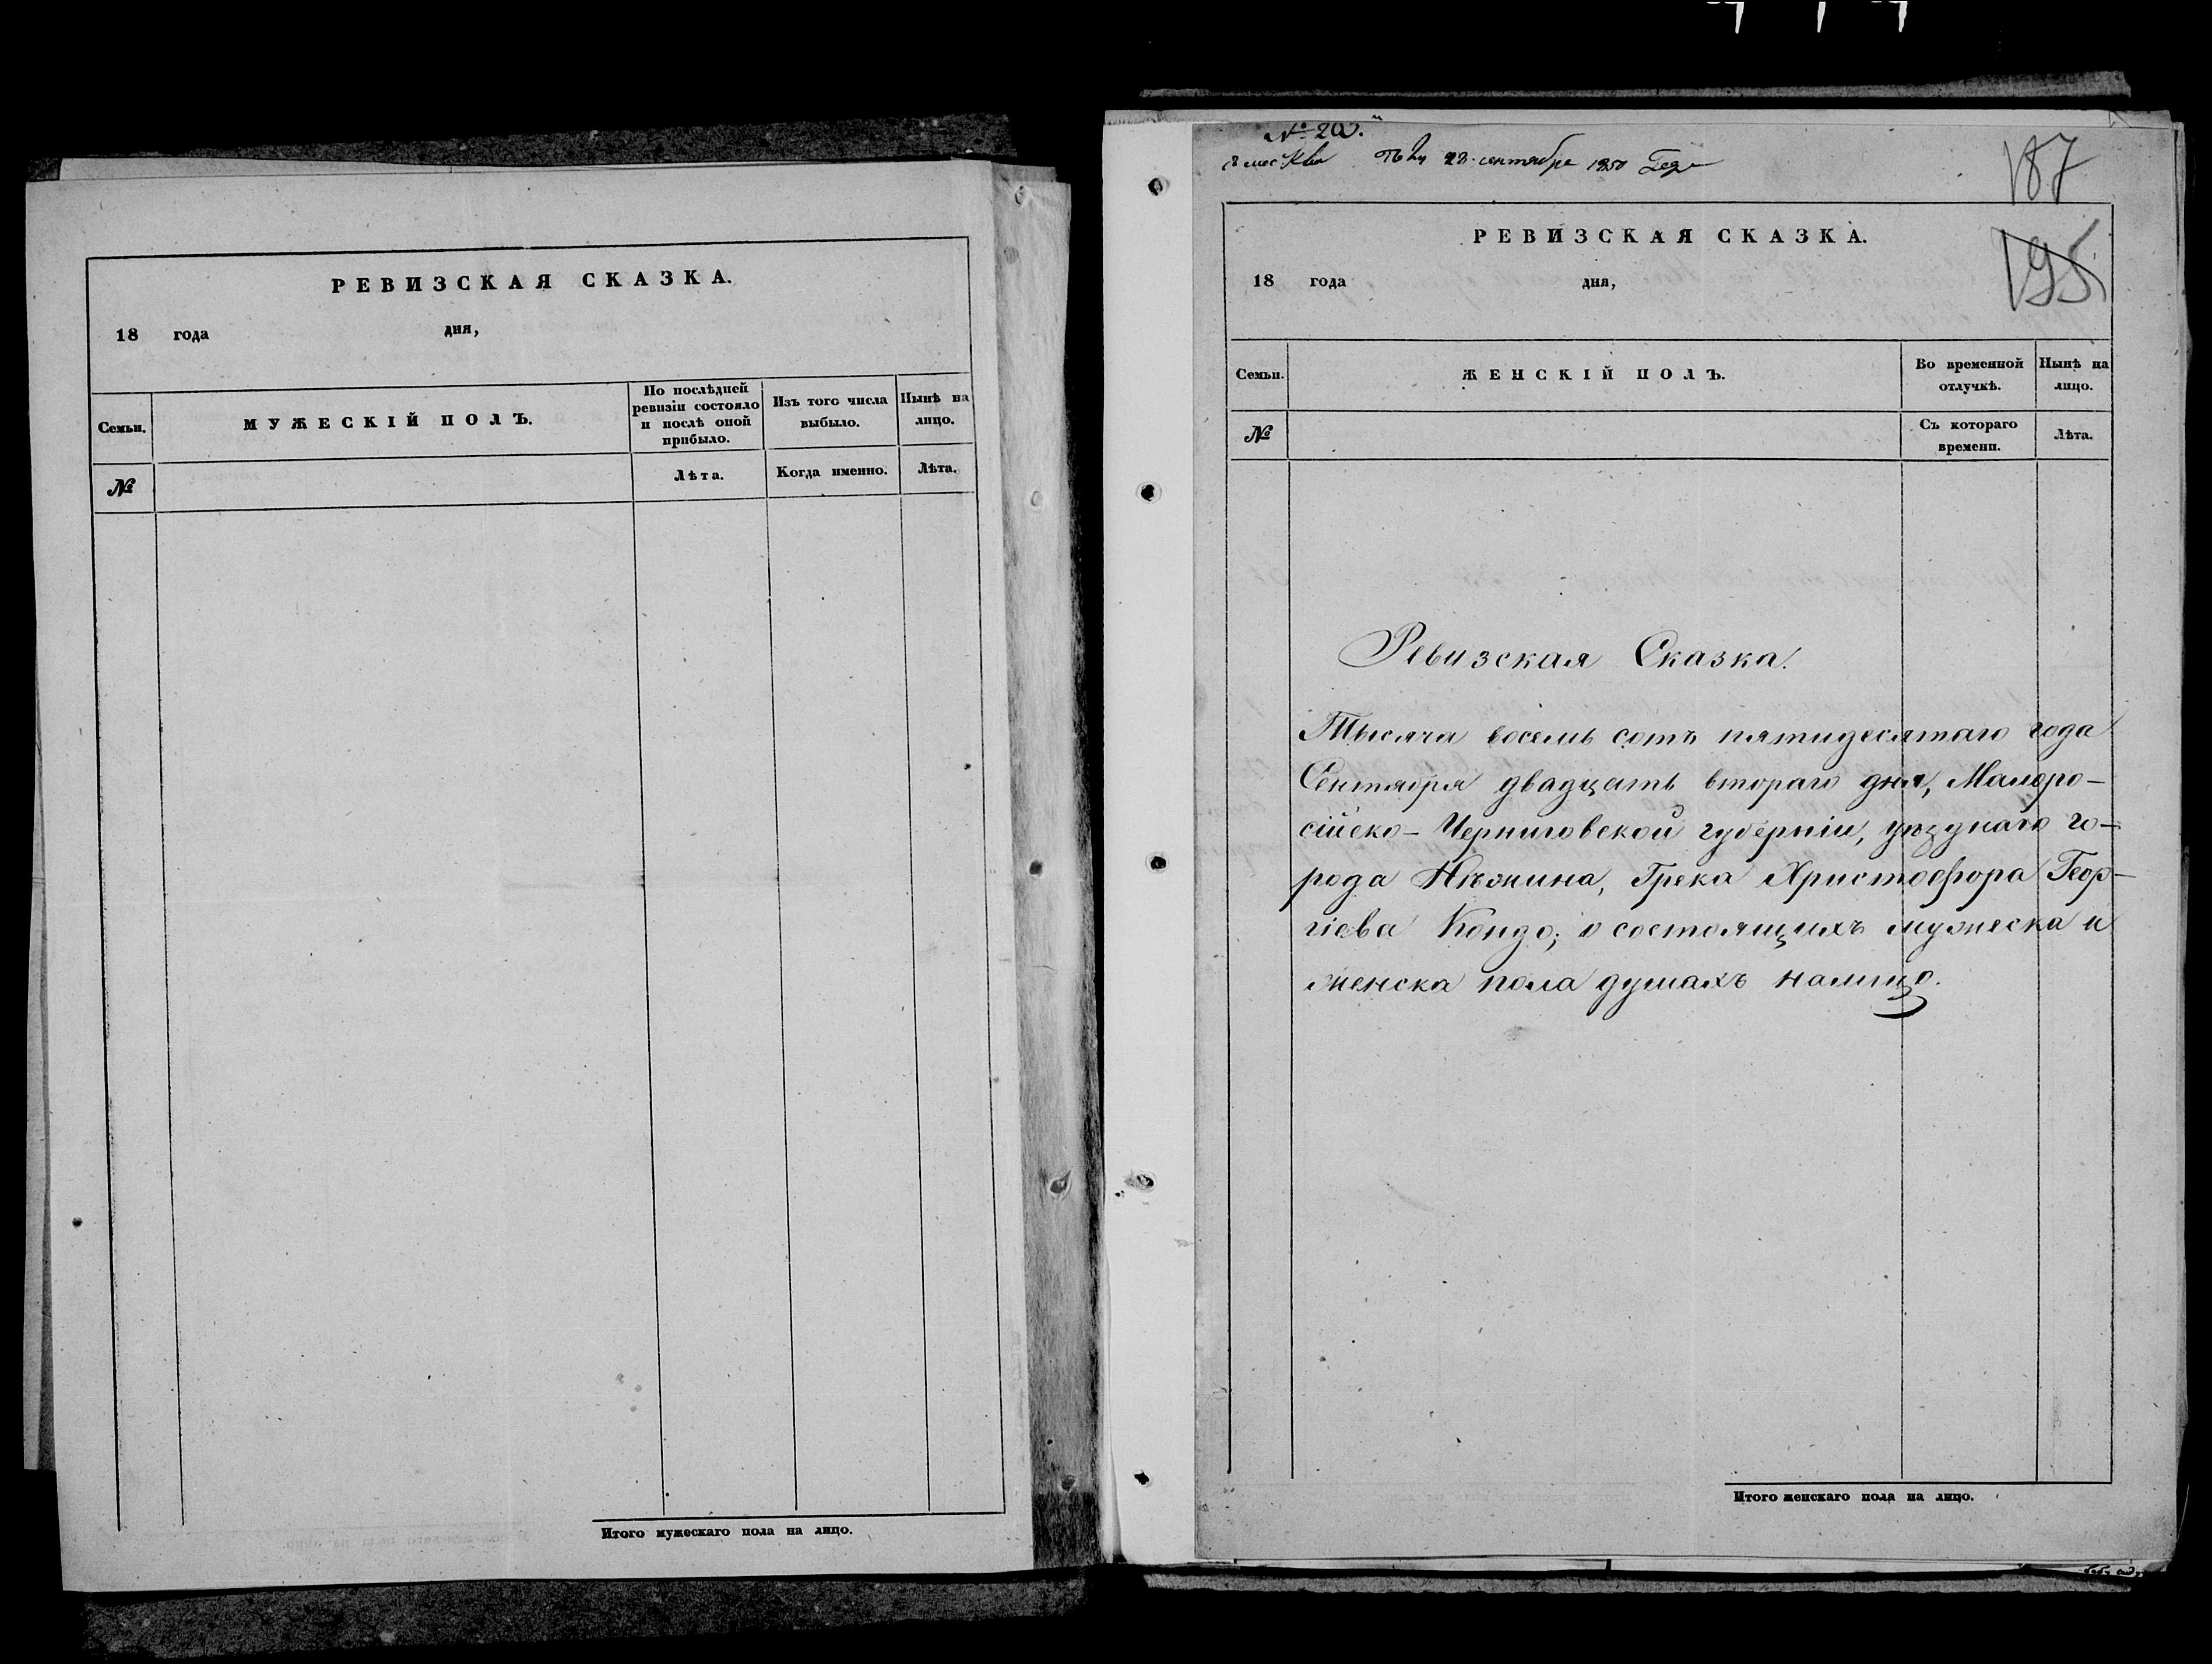 РЕВИЗСКАЯ СКАЗКА.
18 года дня,
Семьи.
МУЖЕСКІЙ ПОЛЪ.
По послѣдней
ревизіи состояло
и послѣ оной
прибыло.
Изъ того числа
выбыло.
Нынѣ на
лицо.
№
Лѣта.
Когда именно.
Лѣта.
Итого мужескаго пола на лицо.
№ 20.
22 сентября 1850 года
187
195
РЕВИЗСКАЯ СКАЗКА.
18 года дня,
Семьи.
ЖЕНСКІЙ ПОЛЪ.
Во временной
отлучкѣ.
Нынѣ на
лицо.
№
Съ котораго
времени.
Лѣта.
Ревизская Сказка.
Тысяча восемь сотъ пятидесятаго года
Сентября двадцать втораго дня, Малоро-
сійско-Черниговской губерніи, уѣзднаго го-
рода Нѣжина, Грека Христофора Геор-
гіева Кондо; о состоящихъ мужеска и
женска пола душахъ налицо.
Итого женскаго пола на лицо.